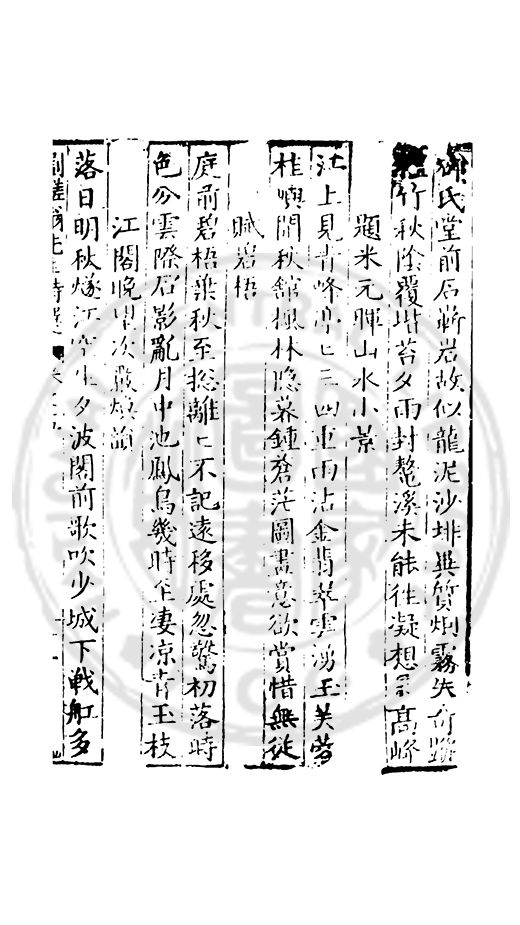 氏堂前石嶄岩故似龍泥沙埋異質烟霧失奇蹤
竹秋陰覆堦苔夕雨封鼇溪未能往凝想高峰
題米元暉山水小景
江上見青峰亭亡三四重雨沾金翡翠雲湧玉芙蓉
桂嶼閒秋舘楓林隐暮鍾蒼茫圖畫意欲賞惜無從
賦碧梧
庭前碧梧葉秋至捴離亡不記遠移處忽驚初落時
色分雲際石影亂月中池鳳鳥幾時至凄凉青玉枝
江閣晚次韻
落日明秋燧江空生夕波閣前歌吹少城下戰舡多
先生詩選